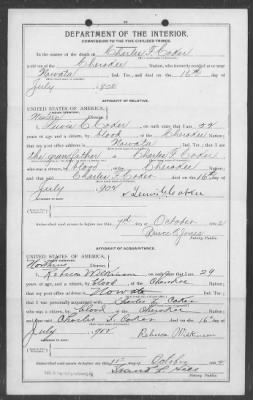 DEPARTMENT OF THE INTERIOR.
COMMISSION TO THE FIVE CIVILIZED TRIBES.
In the matter of the death of Charles F. Coker
a citizen of the Cherokee Nation, who formerly resided at or near
Nowata, Ind. Ter., and died on the 16th day of
July, 1902
AFFIDAVIT OF RELATIVE.
UNITED STATES OF AMERICA,
Western District.
I, Lewis C. Coker, on oath state that I am
years of age and a citizen, by blood, of the Cherokee Nation;
that my post office address is Nowata, Ind. Ter.; that I am
the grandfather of Charles F. Coker
who was a citizen, by blood, of the Cherokee Nation;
and that said Charles F. Coker died on the 16th day of
July, 1902
Lewis C. Coker
Subscribed and sworn to before me this 7th day of October
Bruce C. Jones
Notary Public.
AFFIDAVIT OF ACQUAINTANCE.
UNITED STATES OF AMERICA,
Northern District.
I, Rebecca Wilkinson, on oath state that I am 29
years of age, and a citizen, by blood, of the Cherokee Nation;
that my post office address is Nowata, Ind. Ter.;
that I was personally acquainted with Charles F. Coker
who was a citizen, by blood, of the Cherokee Nation;
and that said Charles F. Coker died on the 16th day of
July, 1902
Rebecca Wilkinson
Subscribed and sworn to before me this day of October
Notary Public.